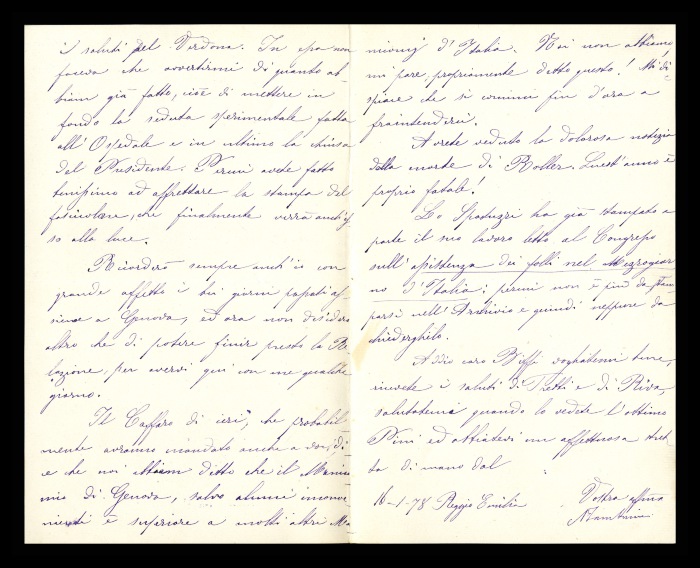 i saluti del Verdona. In essa non
faceva che avvertirmi di quanto ab-
biam già fatto, cioè di mettere in
fondo la seduta sperimentale fatta
all'Ospedale e in ultimo la chiusa
del Presidente. Perciò avete fatto
benissimo ad affrettare la stampa del
fascicolone, che finalmente verrà anch'es-
so alla luce.
Ricorderò sempre anch'io con
grande affetto i bei giorni passati as-
sieme a Genova, ed ora non desidero
altro che di potere finir presto la Re-
lazione, per avervi qui con me qualche
giorno.
Il Caffaro di ieri, che probabil-
mente avranno mandato anche a voi, di-
ce che noi abbiam ditto che il Manico-
mio di Genova, salvo alcuni inconve-
nienti è superiore a molti altri Ma-
nicomj d'Italia. Noi non abbiamo
mi pare, propriamente detto questo! Mi di-
spiace che si cominci fin d'ora a
fraintenderci.
Avrete veduto la dolorosa notizia
della morte di Boller. Quest'anno è
proprio fatale!
Lo Spatuzzi ha già stampato a
parte il suo lavoro letto al Congresso
sull'assistenza dei folli nel Mezzogior-
no d'Italia; perciò non è più da stam-
parsi nell'Archivio e quindi neppure da
chiederglielo.
Addio caro Biffi vogliatemi bene,
ricevete i saluti di Fretti e di Riva,
salutatemi quando lo vedete l'ottimo
Pini ed abbiatevi un affettuosa stret-
ta di mano dal
16-1-78 Reggio Emilia
Vostro affmo
ATamburini